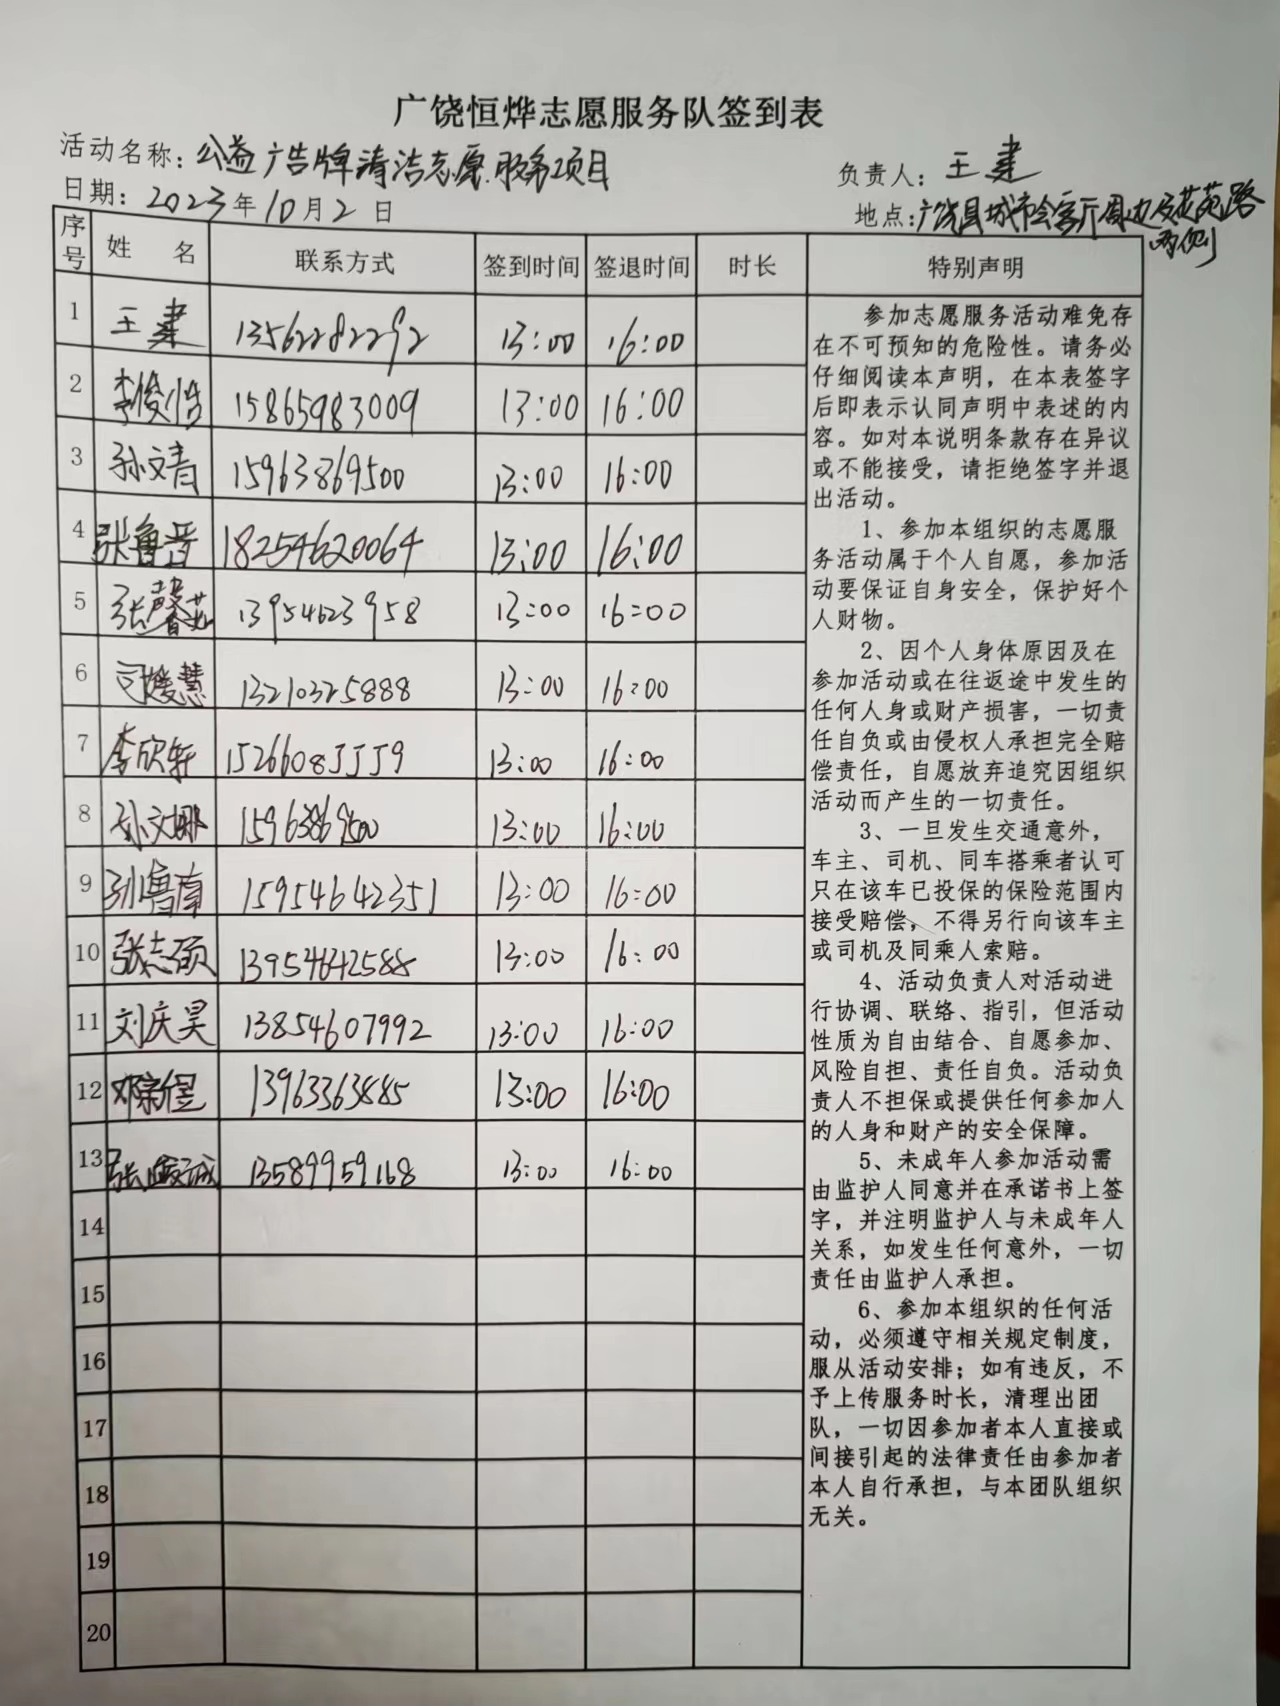 广饶恒烨志愿服务队签到表
活动名称：公益广告牌清洁志愿服务项目 负责人：王建
日期：2023年10月2日 地点：广饶县城市会客厅周边及花苑路
两侧
序号 姓名 联系方式 签到时间 签退时间 时长 特别声明
1 王建 13562282292 13:00 16:00
2 李俊浩 15865983009 13:00 16:00
3 孙文青 15963869500 13:00 16:00
4 张鲁晋 18254620064 13:00 16:00
5 张馨艺 13954623958 13:00 16:00
6 司媛慧 13210325888 13:00 16:00
7 李欣轩 15266085559 13:00 16:00
8 孙文娜 15963869500 13:00 16:00
9 孙鲁南 15954642351 13:00 16:00
10 张志硕 13954642588 13:00 16:00
11 刘庆昊 13854607992 13:00 16:00
12 邓新煜 13963363485 13:00 16:00
13 张峻诚 13589959168 13:00 16:00
14
15
16
17
18
19
20
参加志愿服务活动难免存
在不可预知的危险性。请务必
仔细阅读本声明，在本表签字
后即表示认同声明中表述的内
容。如对本说明条款存在异议
或不能接受，请拒绝签字并退
出活动。
1、参加本组织的志愿服
务活动属于个人自愿，参加活
动要保证自身安全，保护好个
人财物。
2、因个人身体原因及在
参加活动或在往返途中发生的
任何人身或财产损害，一切责
任自负或由侵权人承担完全赔
偿责任，自愿放弃追究因组织
活动而产生的一切责任。
3、一旦发生交通意外，
车主、司机、同车搭乘者认可
只在该车已投保的保险范围内
接受赔偿，不得另行向该车主
或司机及同乘人索赔。
4、活动负责人对活动进
行协调、联络、指引，但活动
性质为自由结合、自愿参加、
风险自担、责任自负。活动负
责人不担保或提供任何参加人
的人身和财产的安全保障。
5、未成年人参加活动需
由监护人同意并在承诺书上签
字，并注明监护人与未成年人
关系，如发生任何意外，一切
责任由监护人承担。
6、参加本组织的任何活
动，必须遵守相关规定制度，
服从活动安排；如有违反，不
予上传服务时长，清理出团
队，一切因参加者本人直接或
间接引起的法律责任由参加者
本人自行承担，与本团队组织
无关。